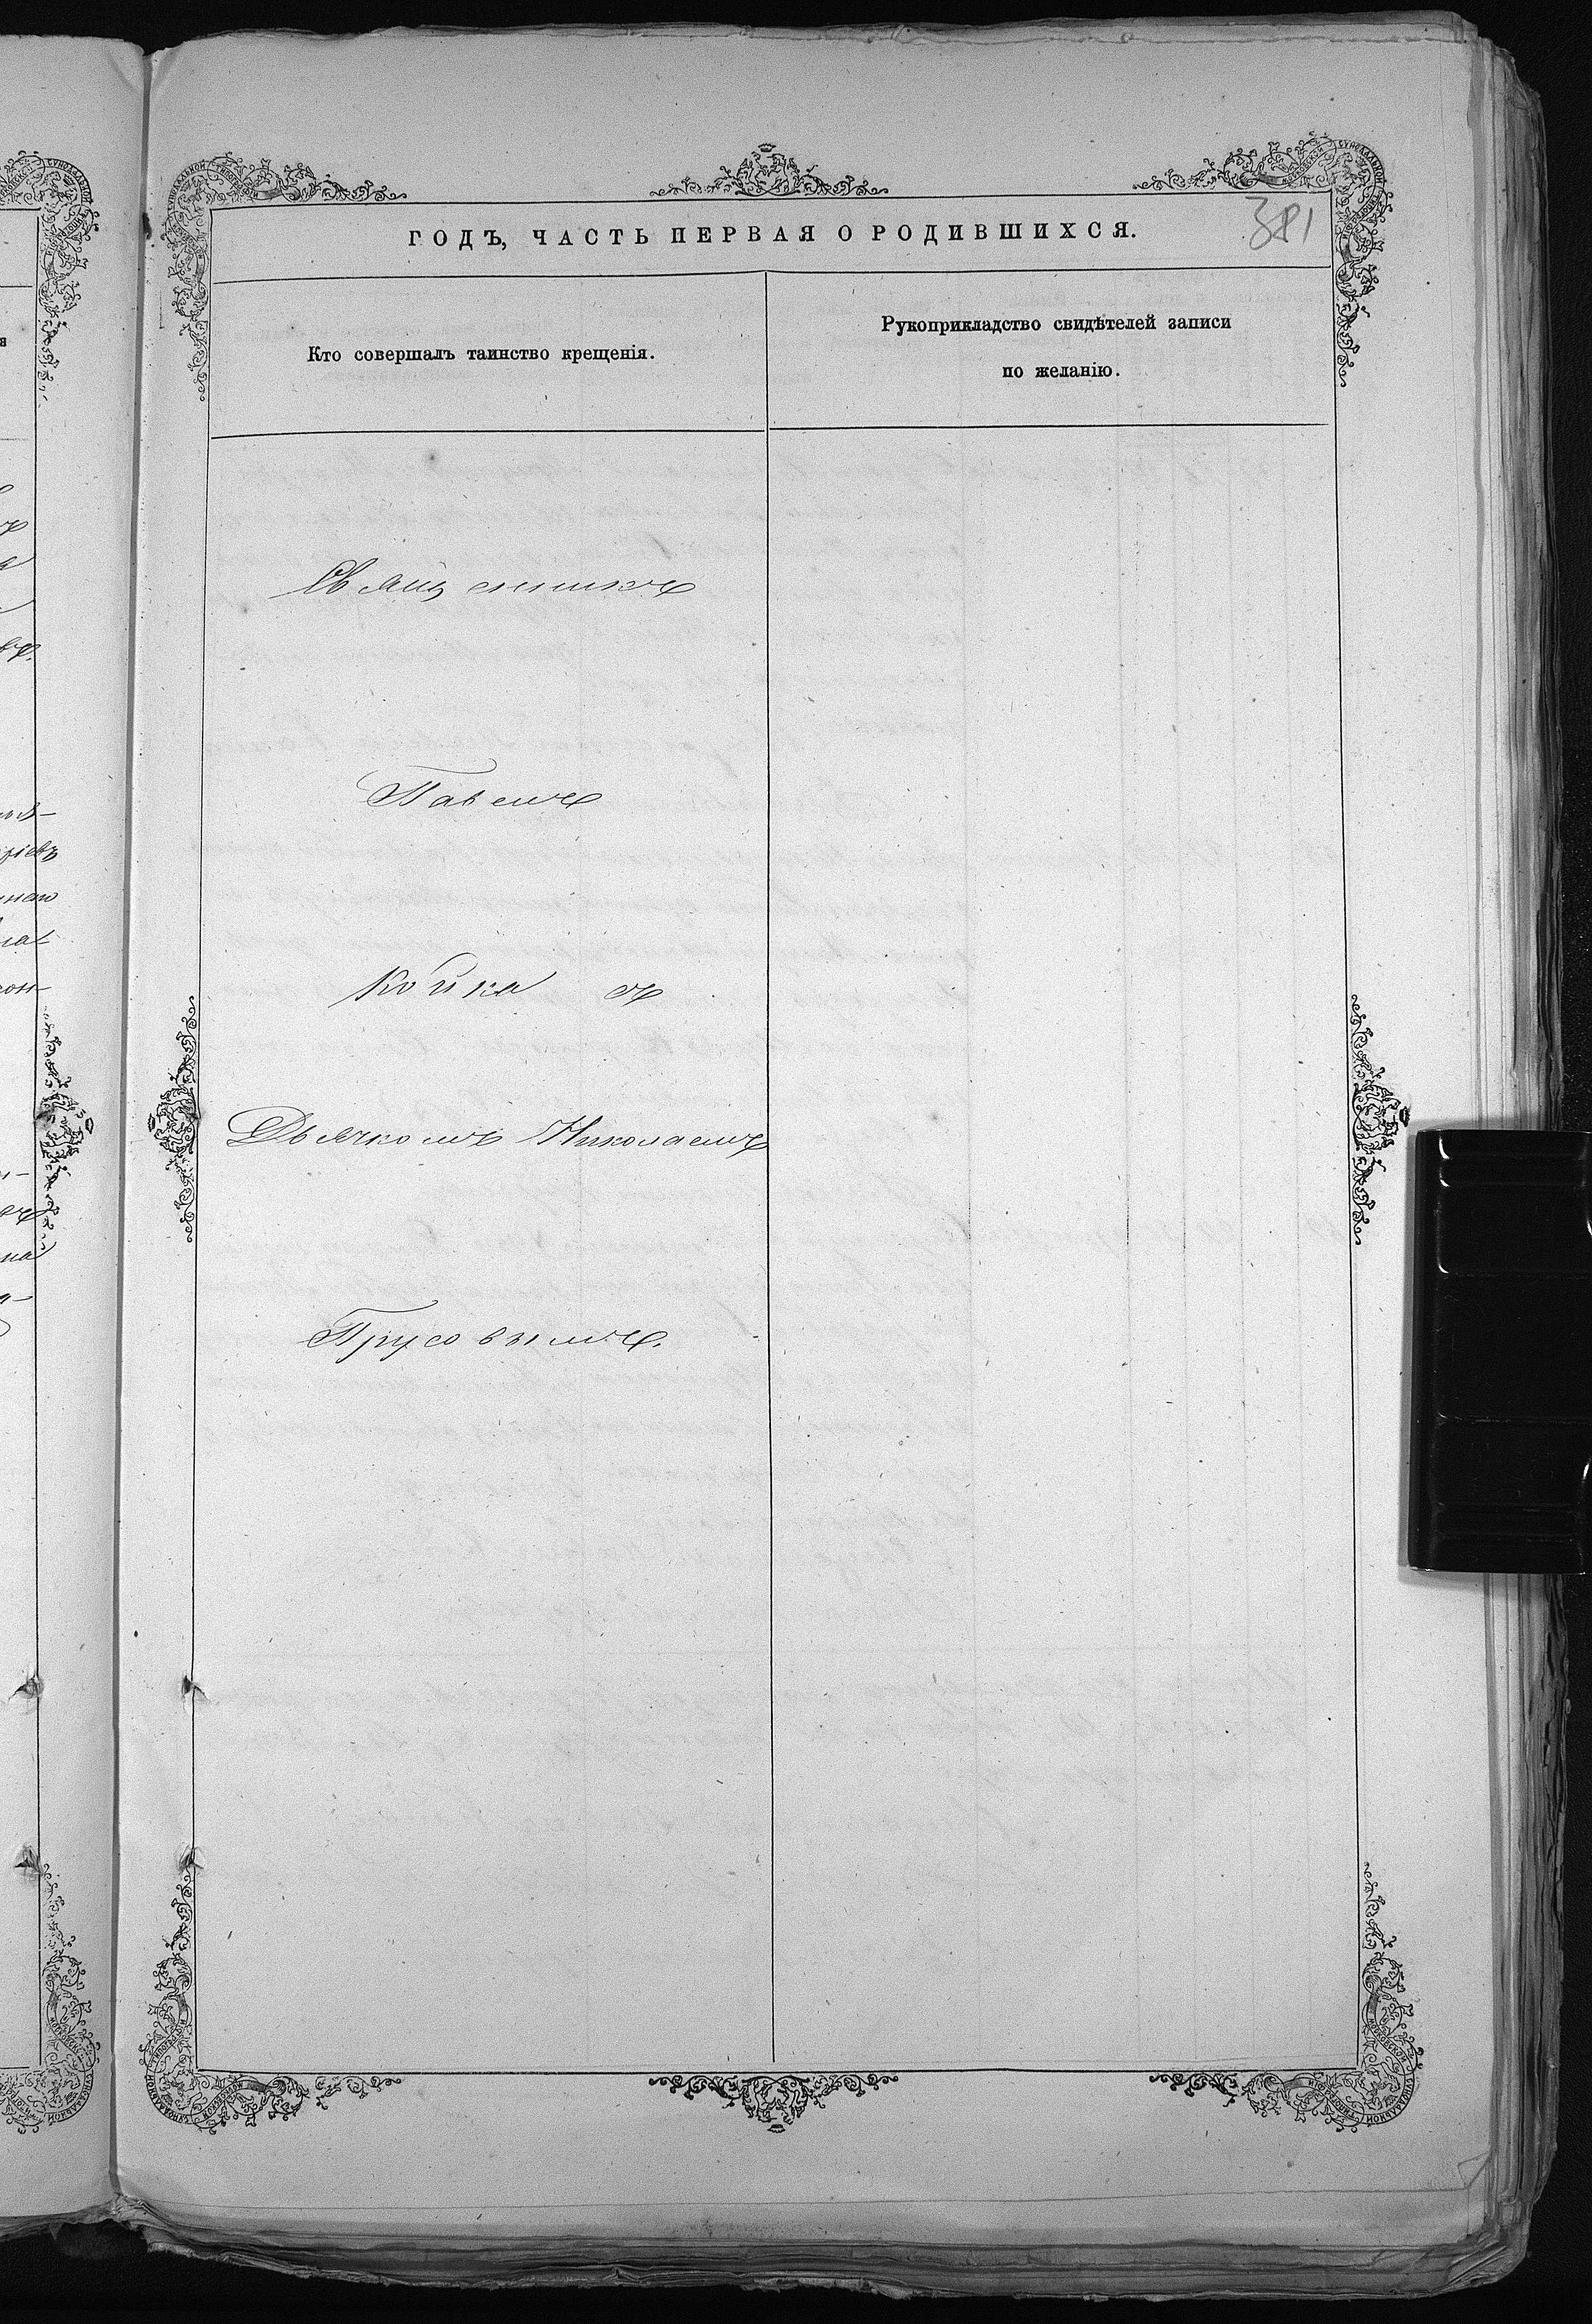 381
ГОДЪ, ЧАСТЬ ПЕРВАЯ О РОДИВШИХСЯ.
Кто совершалъ таинство крещенія.
Рукоприкладство свидѣтелей записи
по желанію.
Священникъ
Павелъ
Койка съ
Дьячкомъ Николаемъ
Прусовымъ.